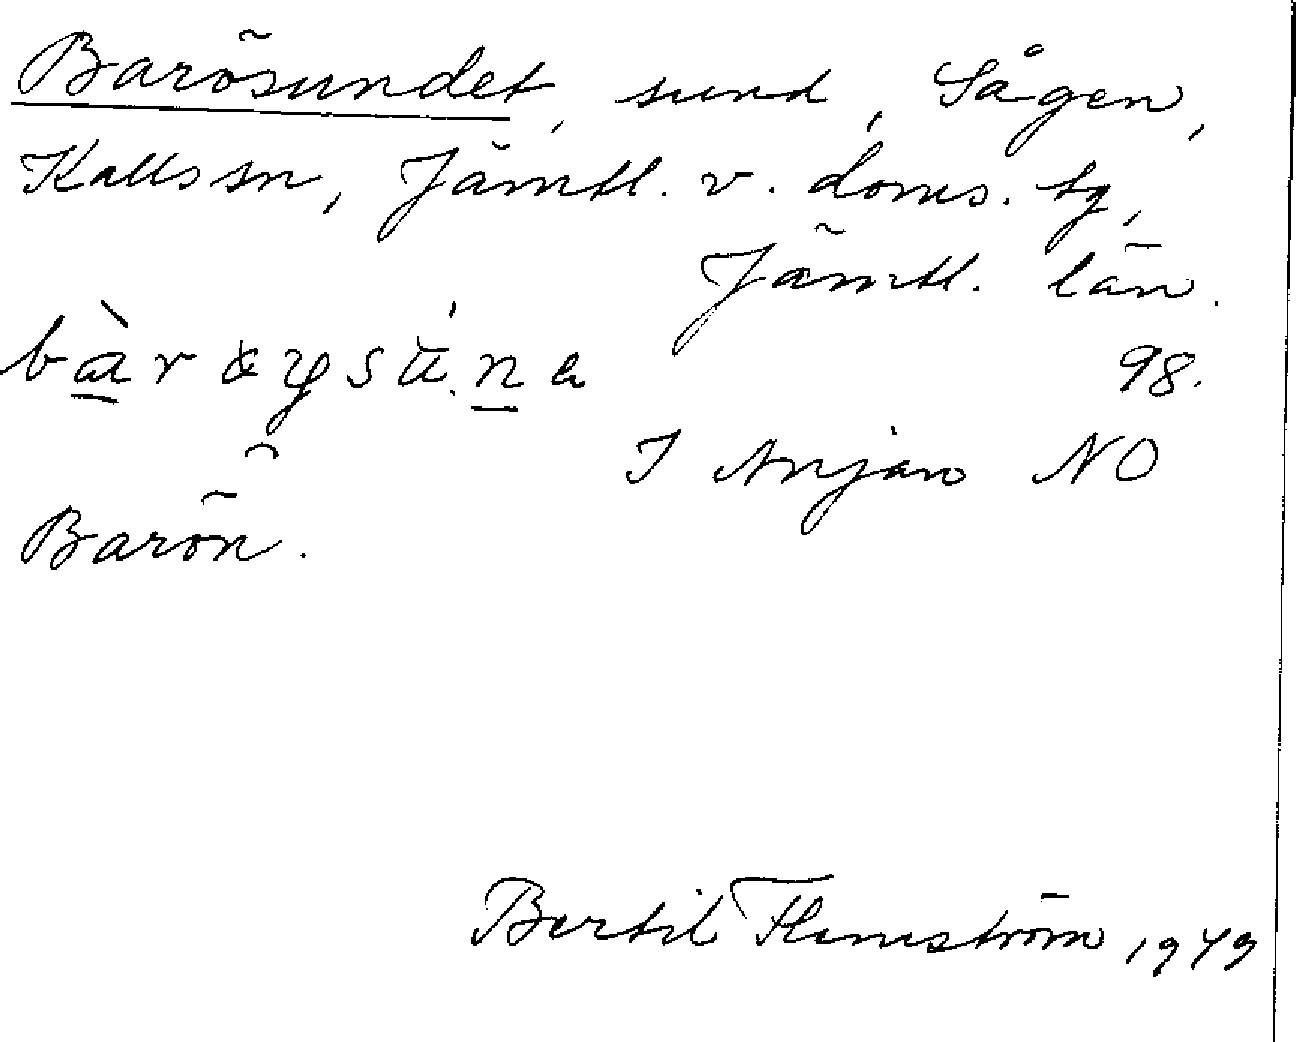 Barösundet, sund, Sågen,
Kalls sn, Jämtl. v. doms. tg,
Jämtl. län.
98.
I Anjan NO
Barön.
Bertil Flemström 1973